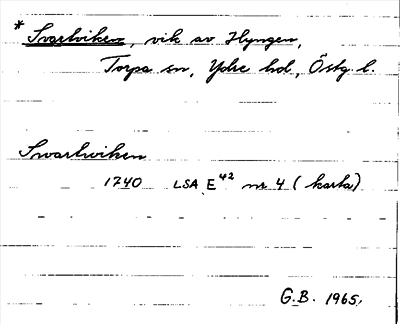 * Svartviken, vik av Hyngen,
Torpa sn, Ydre hd, Östg. l.
Svartviken
1740 LSA E42 nr 4 (karta)
G.B. 1965.